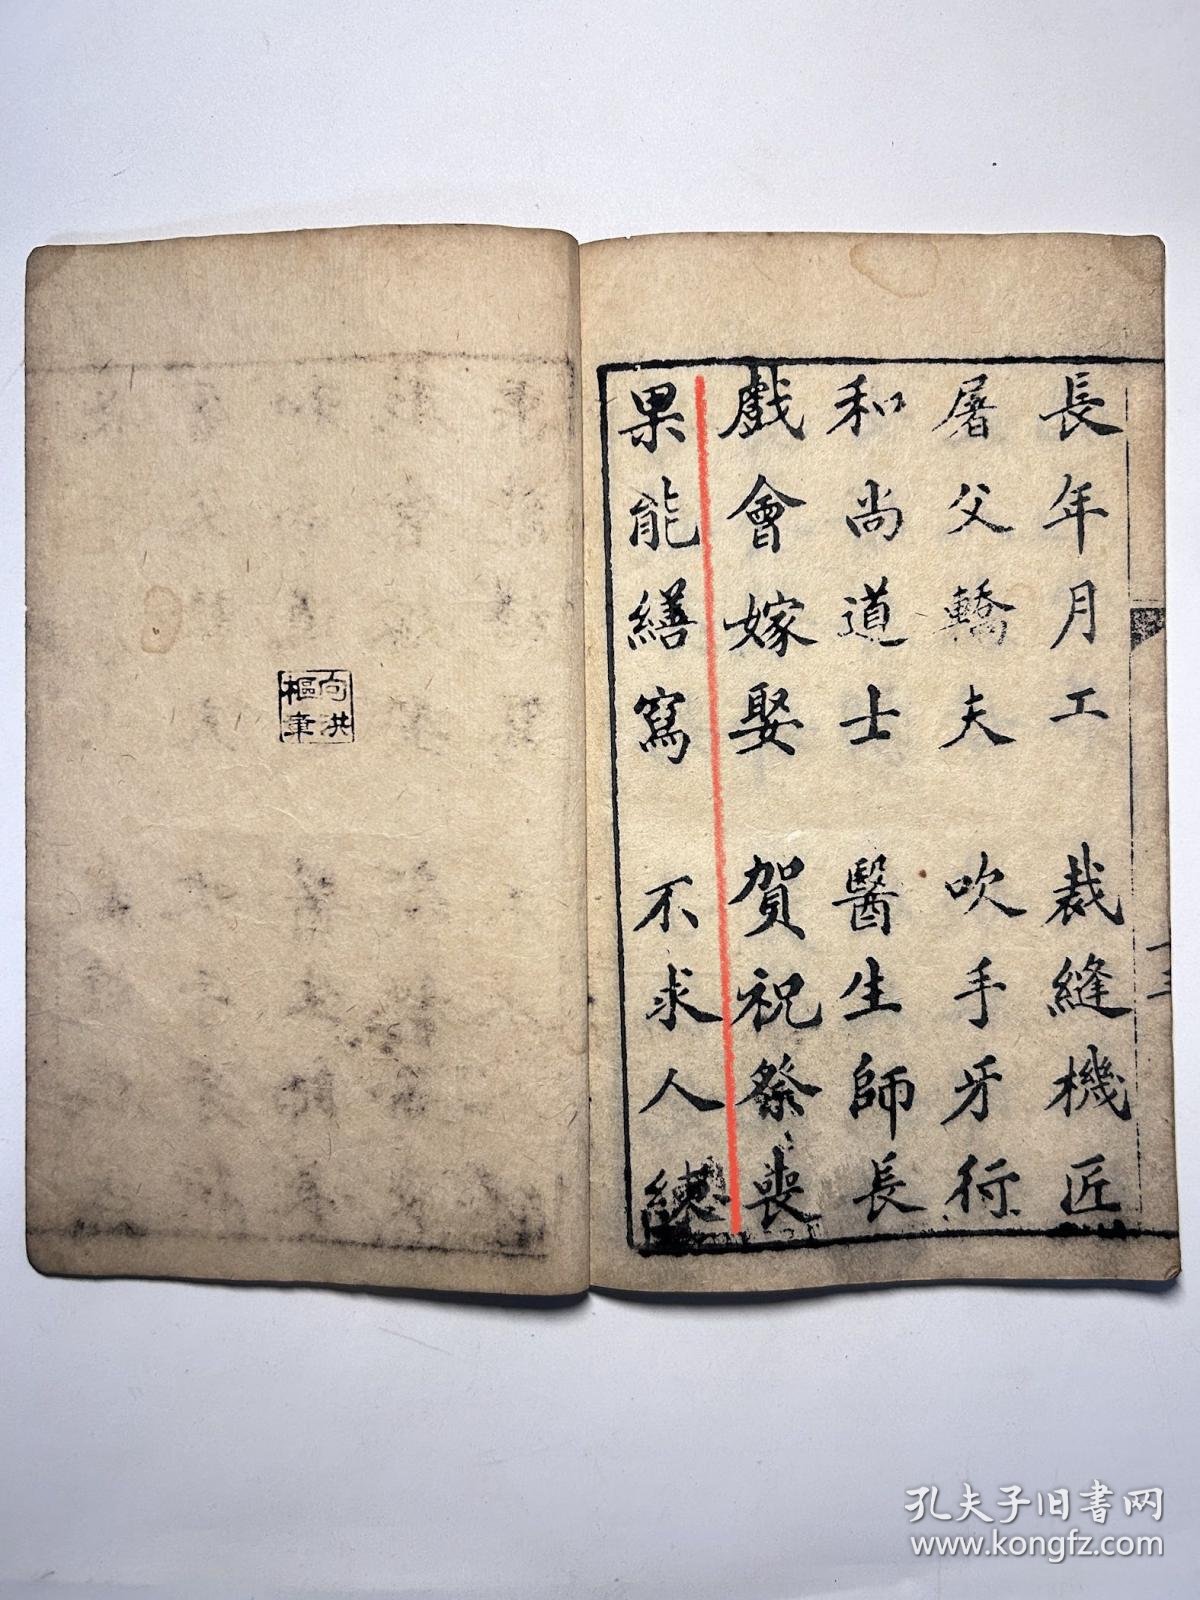 長年月工 裁縫機匠
屠父轎夫 吹手牙行
和尚道士 醫生師長
戲會嫁娶 賀祝祭喪
果能繕寫 不求人綉
十三
向洪
樞聿
孔夫子旧書网
www.kongfz.com